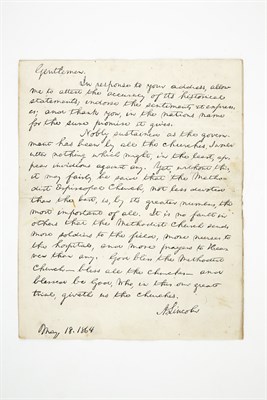 Gentlemen.
In response to your address, allow
me to attest the accuracy of its historical
statements; indorse the sentiments it expres-
ses; and thank you, in the nation's name,
for the sure promise it gives.
Nobly sustained as the govern-
ment has been by all the churches, I would
utter nothing which might, in the least, ap-
pear invidious against any. Yet, without this,
it may fairly be said that the Metho-
dist Episcopal Church, not less devoted
than the best, is, by its greater numbers, the
most important of all. It is no fault in
others that the Methodist Church sends
more soldiers to the field, more nurses to
the hospitals, and more prayers to Heav-
en than any. God bless the Methodist
Church— bless all the churches— and
blessed be God, Who, in this our great
trial, giveth us the churches.
A. Lincoln
May 18. 1864